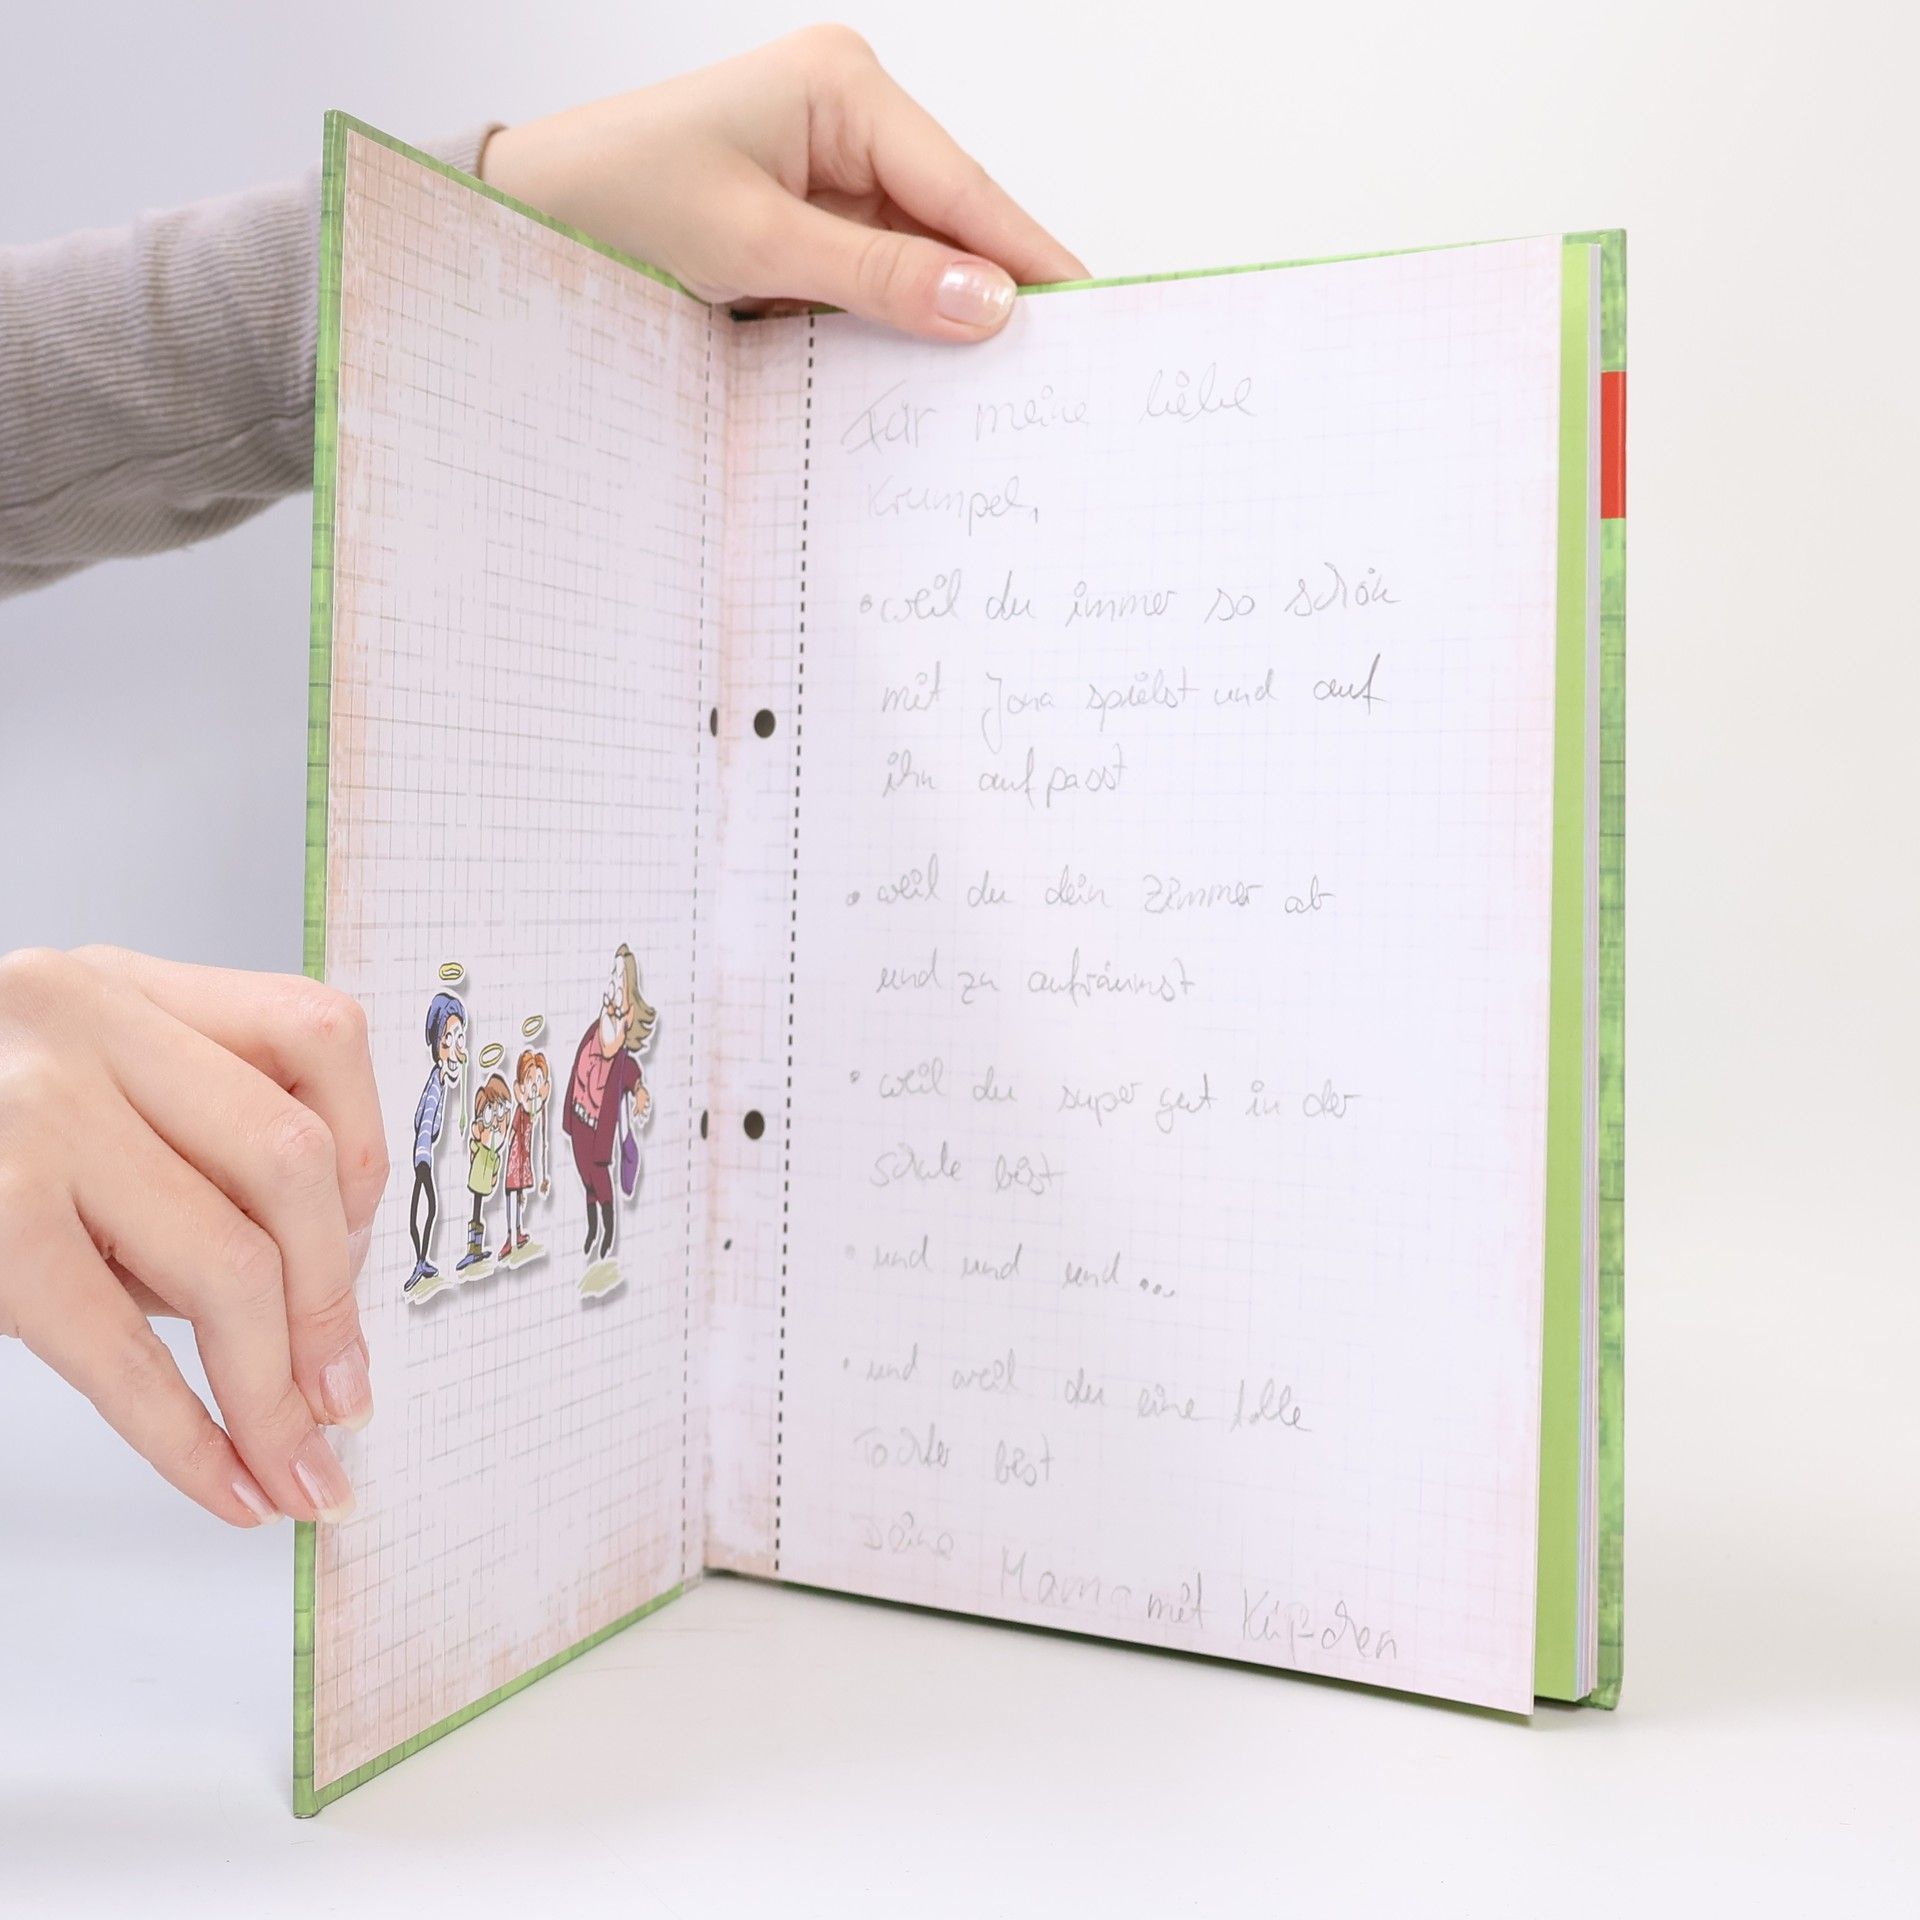 Für meine liebe
Krumpel,
• weil du immer so schön
mit Jona spielst und auf
ihn aufpasst
• weil du dein Zimmer ab
und zu aufräumst
• weil du super gut in der
Schule bist
• und und und...
• und weil du eine tolle
Tochter bist
Deine Mama mit Küßchen